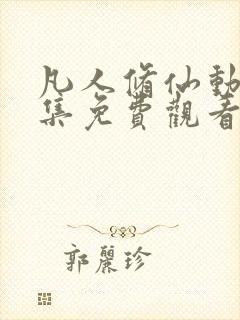 凡人脩仙動
集免費觀看
郭麗珍